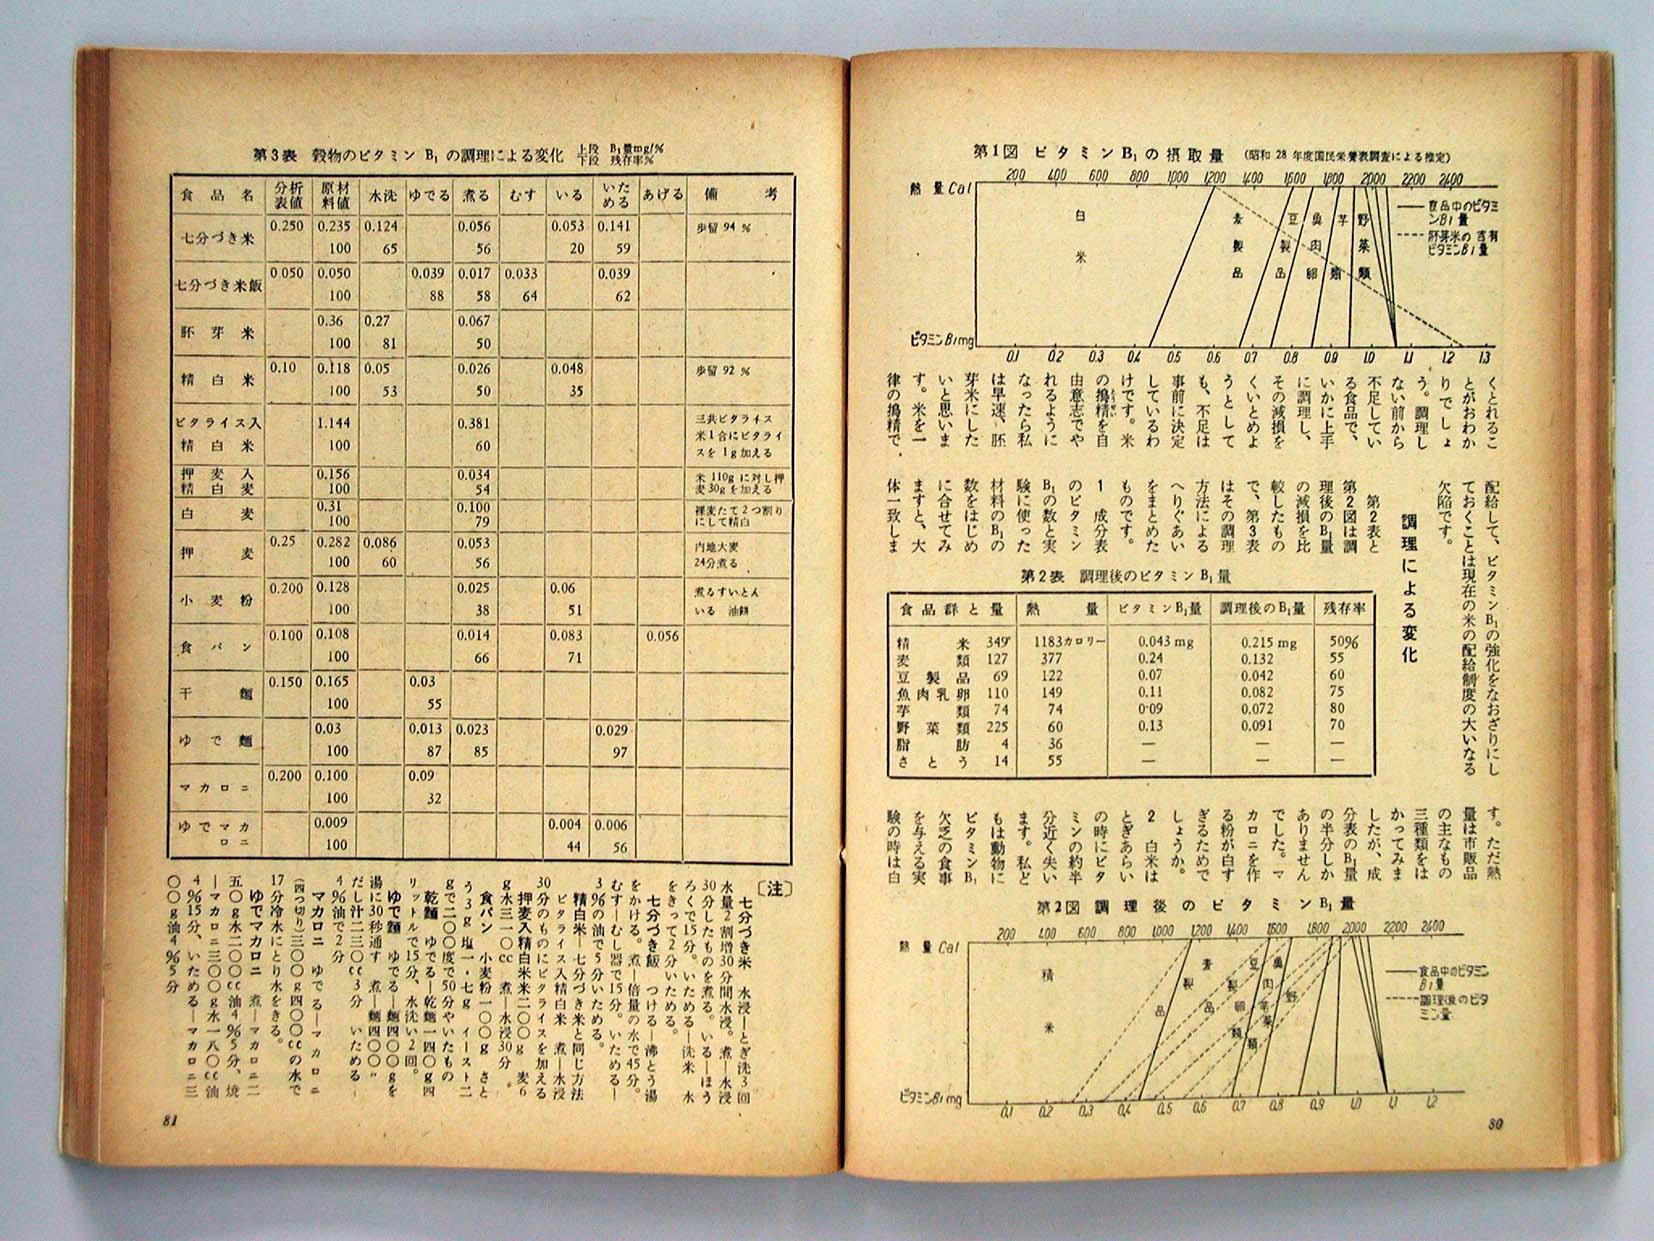 第1図 ビタミンB₁の摂取量 (昭和28年度国民栄養表調査による推定)
熱量Cal 200 400 600 800 1000 1200 1400 1600 1800 2000 2200 2400
白米
麦製品
豆製品
魚肉卵
芋類
野菜類
食品中のビタミンB1量
胚芽米の含有ビタミンB1量
ビタミンB1mg 0.1 0.2 0.3 0.4 0.5 0.6 0.7 0.8 0.9 1.0 1.1 1.2 1.3
くとれるこ
とがおわか
りでしょ
う。調理し
ない前から
不足してい
る食品で、
いかに上手
に調理し、
その減損を
くいとめよ
うとして
も、不足は
事前に決定
しているわ
けです。米
の搗精を自
由意志でや
れるように
なったら私
は早速、胚
芽米にした
いと思いま
す。米を一
律の搗精で、
配給して、ビタミンB₁の強化をなおざりにし
ておくことは現在の米の配給制度の大いなる
欠陥です。
調理による変化
第2表と
第2図は調
理後のB₁量
の減損を比
較したもの
で、第3表
はその調理
方法による
へりぐあい
をまとめた
ものです。
1 成分表
のビタミン
B₁の数と実
験に使った
材料のB₁の
数をはじめ
に合せてみ
ますと、大
体一致しま
第2表 調理後のビタミンB₁量
食品群と量 熱量 ビタミンB₁量 調理後のB₁量 残存率
精米 349 1183カロリー 0.043 mg 0.215 mg 50%
麦類 127 377 0.24 0.132 55
豆製品 69 122 0.07 0.042 60
魚肉乳卵 110 149 0.11 0.082 75
芋類 74 74 0.09 0.072 80
野菜類 225 60 0.13 0.091 70
脂肪 4 36 — — —
さとう 14 55 — — —
す。ただ熱
量は市販品
の主なもの
三種類をは
かってみま
したが、成
分表のB₁量
の半分しか
ありません
でした。マ
カロニを作
る粉が白す
ぎるためで
しょうか。
2 白米は
とぎあらい
の時にビタ
ミンの約半
分近く失い
ます。私ど
もは動物に
ビタミンB₁
欠乏の食事
を与える実
験の時は白
第2図 調理後のビタミンB₁量
熱量Cal 200 400 600 800 1000 1200 1400 1600 1800 2000 2200 2400
精米
麦製品
豆製品
魚肉卵類
芋類
野菜類
食品中のビタミンB1量
調理後のビタミン量
ビタミンB1mg 0.1 0.2 0.3 0.4 0.5 0.6 0.7 0.8 0.9 1.0 1.1 1.2
80
第3表 穀物のビタミンB₁の調理による変化 上段 B₁量mg/% 下段 残存率%
食品名 分析表値 原材料値 水洗 ゆでる 煮る むす いる いためる あげる 備考
七分づき米 0.250 0.235 0.124 0.056 0.053 0.141 歩留94%
100 65 56 20 59
七分づき米飯 0.050 0.050 0.039 0.017 0.033 0.039
100 88 58 64 62
胚芽米 0.36 0.27 0.067
100 81 50
精白米 0.10 0.118 0.05 0.026 0.048 歩留92%
100 53 50 35
ビタライス入精白米 1.144 0.381 三共ビタライス 米1合にビタライスを1g加える
100 60
押麦入精白麦 0.156 0.034 米110gに対し押麦30gを加える
100 54
白麦 0.31 0.100 裸麦たて2つ割りにして精白
100 79
押麦 0.25 0.282 0.086 0.053 内地大麦 24分煮る
100 60 56
小麦粉 0.200 0.128 0.025 0.06 煮るすいとん いる 油餅
100 38 51
食パン 0.100 0.108 0.014 0.083 0.056
100 66 71
干麺 0.150 0.165 0.03
100 55
ゆで麺 0.03 0.013 0.023 0.029
100 87 85 97
マカロニ 0.200 0.100 0.09
100 32
ゆでマカロニ 0.009 0.004 0.006
100 44 56
〔注〕
七分づき米 水浸—とぎ洗3回
水量2割増30分間水浸。煮—水浸
30分したものを煮る。いる—ほう
ろくで15分。いためる—洗米 水
をきって2分いためる。
七分づき飯 つける—沸とう湯
をかける。煮—倍量の水で45分。
むす—むし器で15分。いためる—
3%の油で5分いためる。
精白米—七分づき米と同じ方法
ビタライス入精白米 煮—水浸
30分のものにビタライスを加える
押麦入精白米米二〇〇g 麦6
g水三一〇cc 煮—水浸30分。
食パン 小麦粉一〇〇g さと
う3g塩一・七g イースト二
gで二〇〇度で50分やいたもの
乾麵 ゆでる—乾麵一四〇g四
リットルで15分、水洗い2回。
ゆで麵 ゆでる—麵四〇〇gを
湯に30秒通す 煮—麵四〇〇g
だし汁二三〇cc3分 いためる—
4%油で2分
マカロニ ゆでる—マカロニ
(四つ切り)三〇〇g四〇〇ccの水で
17分冷水にとり水をきる。
ゆでマカロニ 煮—マカロニ二
五〇g水二〇〇cc油4%5分、焼
—マカロニ三〇〇g水一八〇cc油
4%15分、いためる—マカロニ三
〇〇g油4%5分
81